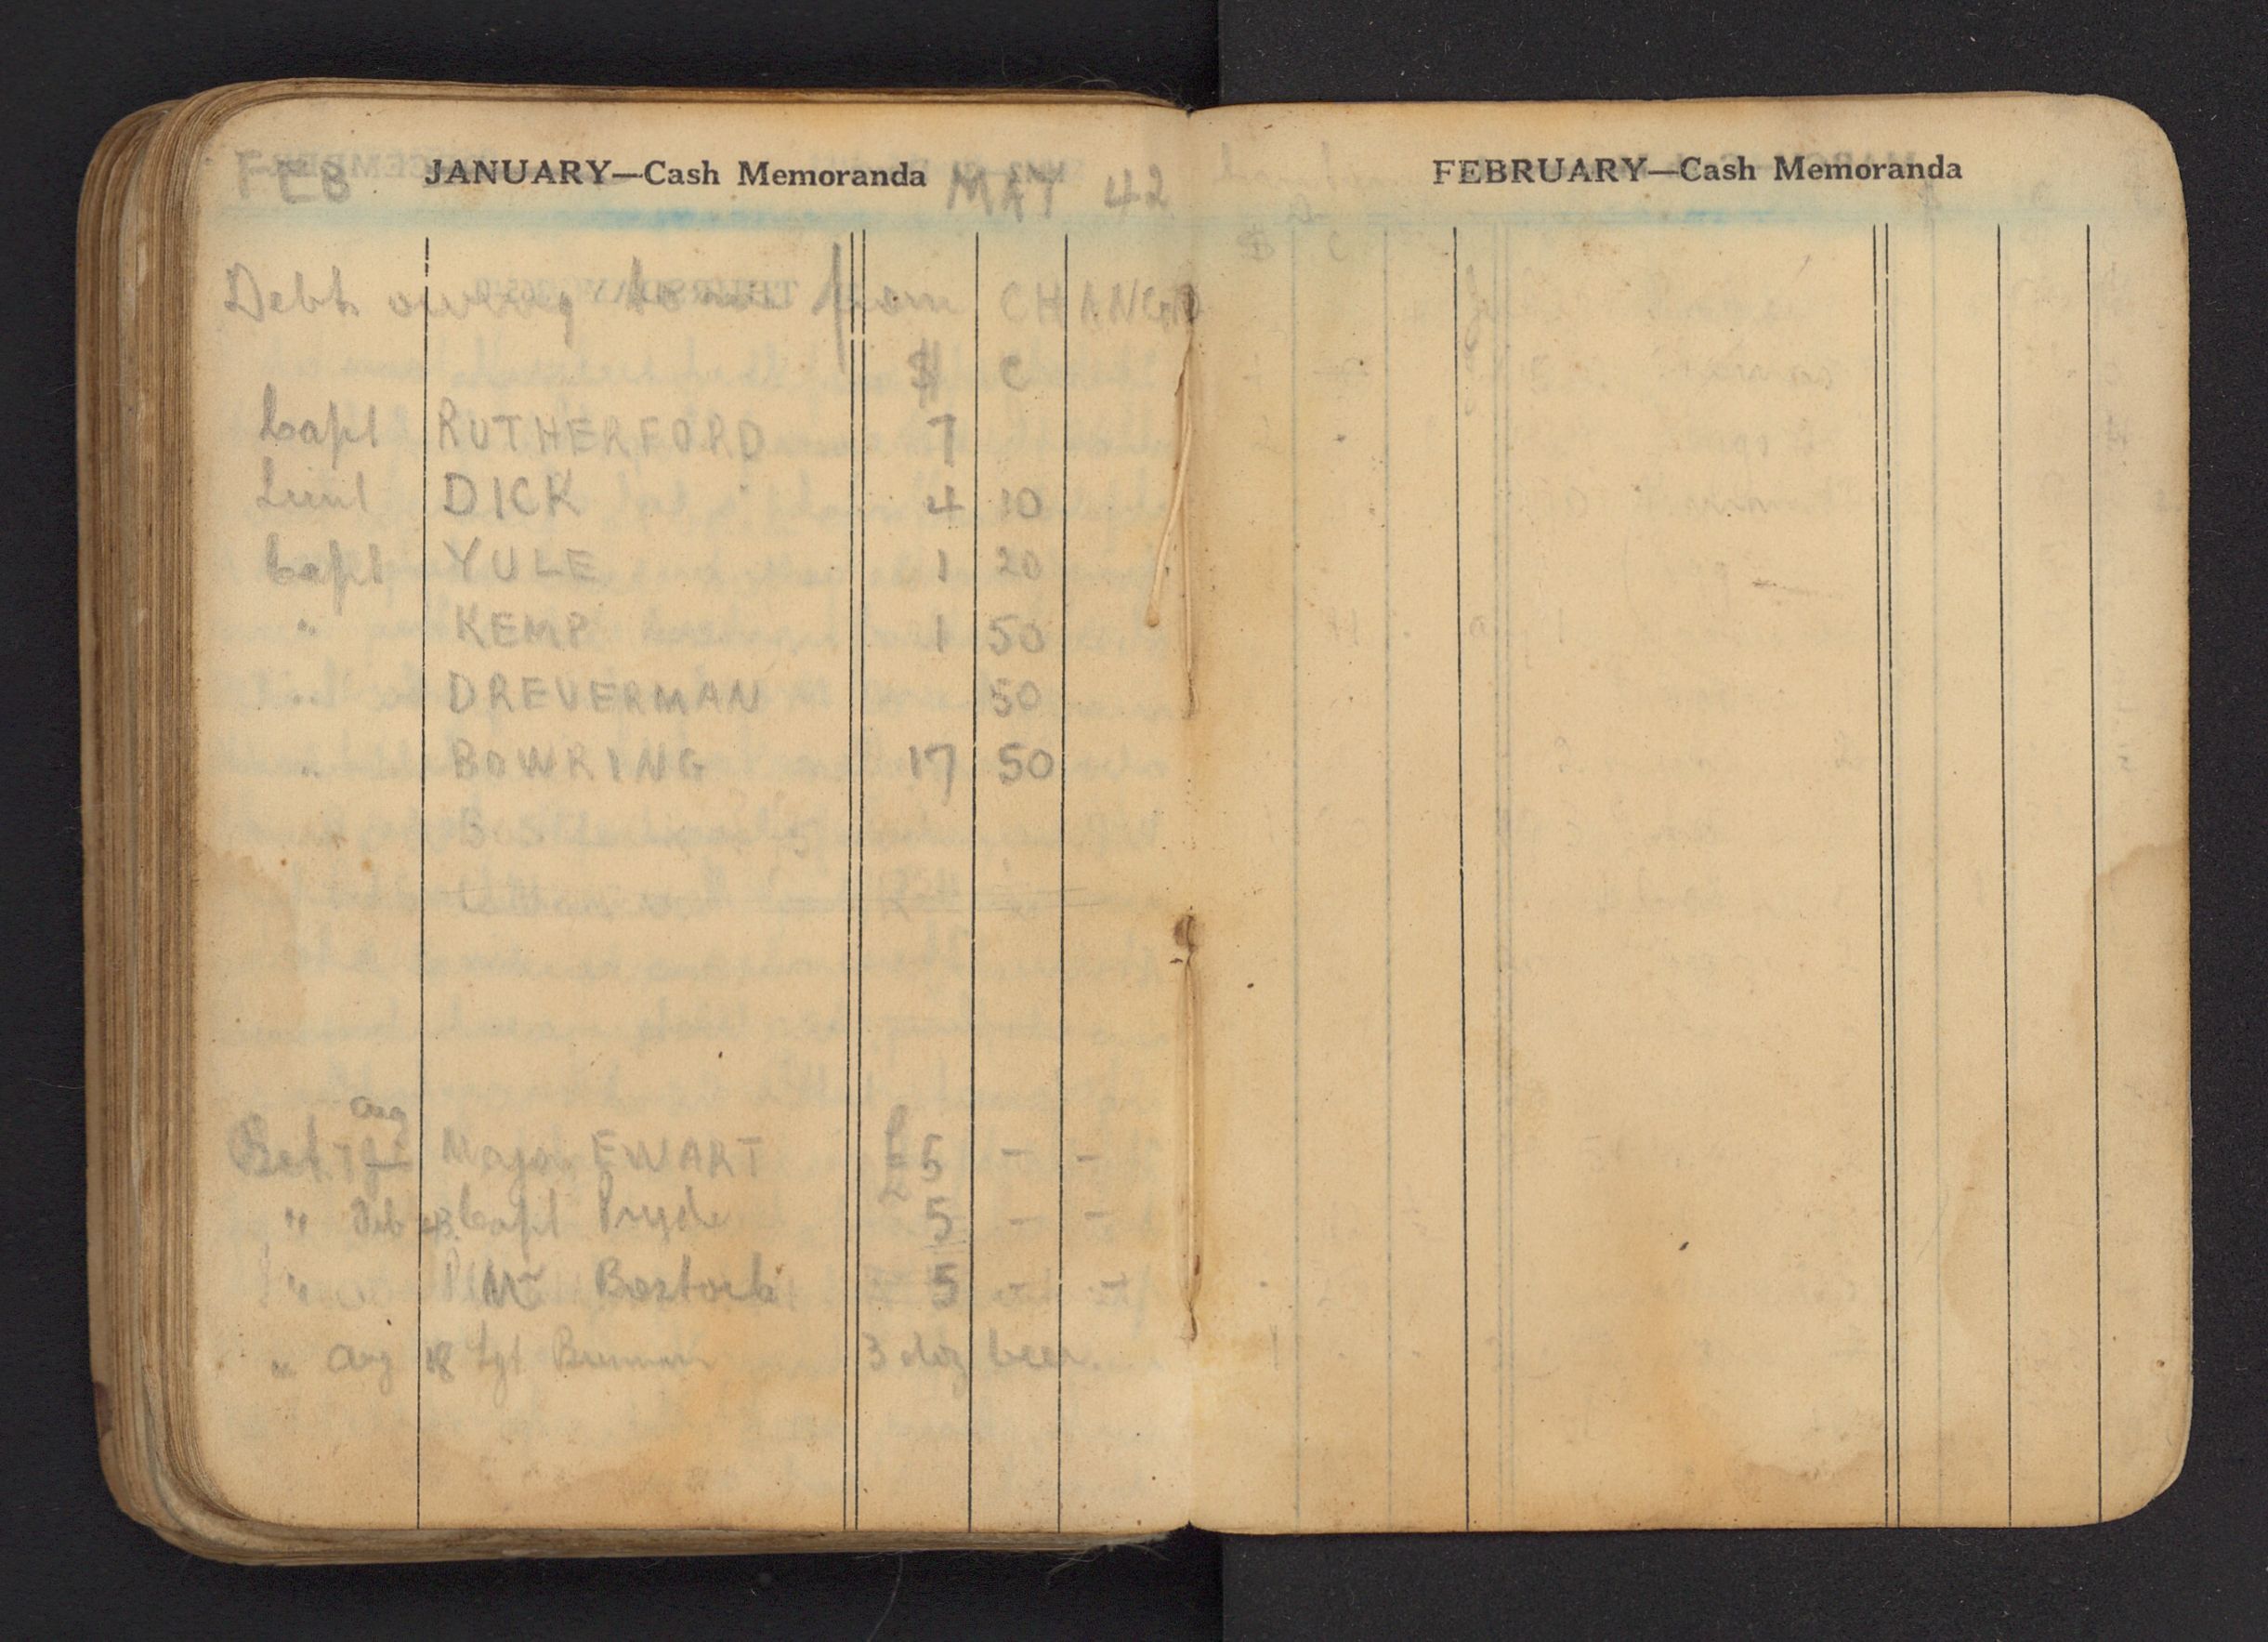 FEB JANUARY—Cash Memoranda MAY 42
Debts owing to me from CHANGI
$ C
Capt RUTHERFORD 7
Lieut DICK 4 10
Capt YULE 1 20
" KEMP 1 50
" DREVERMAN 50
" BOWRING 17 50
Aug
Bet Major EWART £5 - -
" Feb 43 Capt Pryde 5 - -
" Bostock 5 - -
" Aug Sgt 3 doz beer.
FEBRUARY—Cash Memoranda